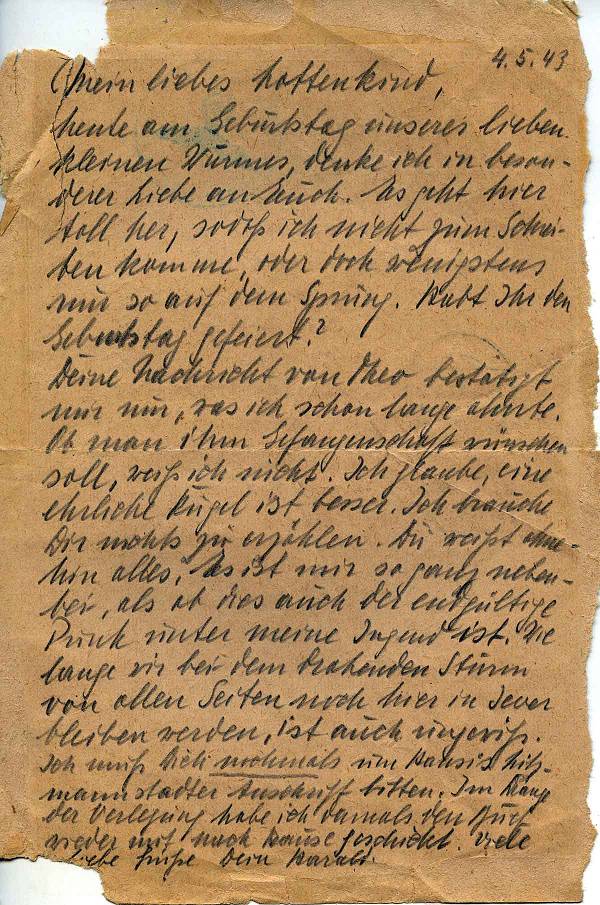 4.5.43
Mein liebes Lottenkind,
heute am Geburtstag unseres lieben
kleinen Wurmes, denke ich in beson-
derer Liebe an Euch. Es geht hier
toll her, sodaß ich nicht zum Schrei-
ben komme, oder doch wenigstens
nur so auf dem Sprung. Habt Ihr den
Geburtstag gefeiert?
Deine Nachricht von Theo bestätigt
mir nur, was ich schon lange ahnte.
Ob man ihm Gefangenschaft wünschen
soll, weiß ich nicht. Ich glaube, eine
ehrliche Kugel ist besser. Ich brauche
Dir nichts zu erzählen. Du weißt ohne-
hin alles. Es ist mir so ganz neben-
bei, als ob dies auch der endgültige
Punk unter meine Jugend ist. Wie
lange wir bei dem drohenden Sturm
von allen Seiten noch hier in Jever
bleiben werden, ist auch ungewiß.
Ich muß Dich nochmals um Hansis
mannstadter Anschrift bitten. Im
der Verlegung habe ich damals den
wieder mit nach Hause geschickt. Viele
liebe Grüße Dein Harald.